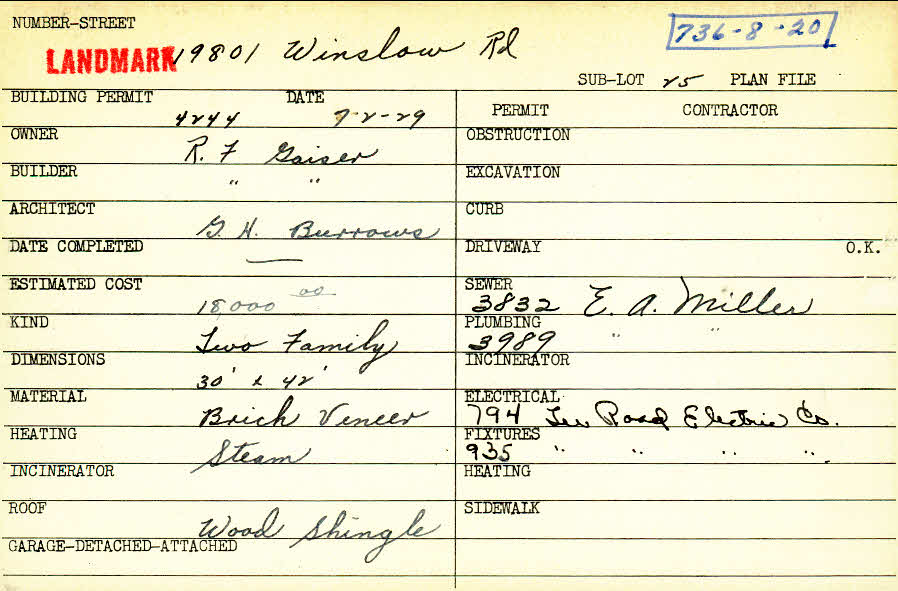 NUMBER-STREET
LANDMARK 19801 Winslow Rd
736-8-20
SUB-LOT 25 PLAN FILE
BUILDING PERMIT DATE
4244 7-2-29
OWNER
R. F Gaiser
BUILDER
" "
ARCHITECT
G. H. Burrows
DATE COMPLETED
—
ESTIMATED COST
18,000 00
KIND
Two Family
DIMENSIONS
30' x 42'
MATERIAL
Brick Veneer
HEATING
Steam
INCINERATOR
ROOF
Wood Shingle
GARAGE-DETACHED-ATTACHED
PERMIT CONTRACTOR
OBSTRUCTION
EXCAVATION
CURB
DRIVEWAY O.K.
SEWER
3832 E. A. Miller
PLUMBING
3989 " "
INCINERATOR
ELECTRICAL
794 Lee Road Electric Co.
FIXTURES
935 " " " "
HEATING
SIDEWALK